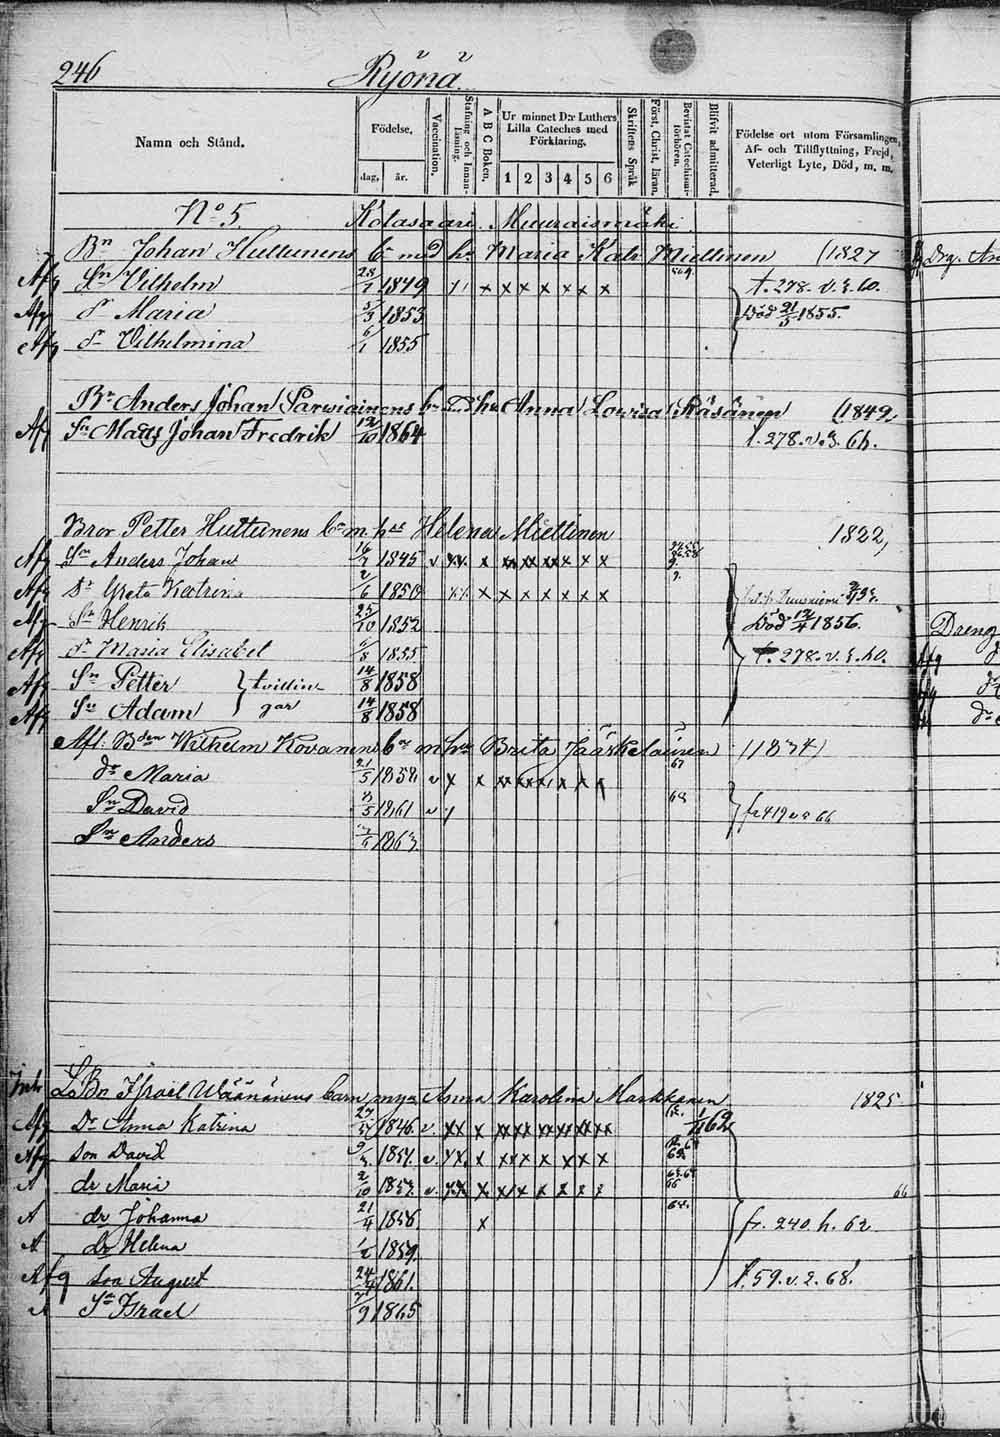 246 Ryönä
Namn och Stånd. Födelse. dag, år. Vaccination. Stafning och Innanläsning. A B C Boken. Ur minnet D:r Luthers Lilla Cateches med Förklaring. 1 2 3 4 5 6 Skriftens Språk Först. Christ. läran. Bevistat Catechismiförhören. Blifvit admitterad. Födelse ort utom Församlingen, Af- och Tillflyttning, Frejd, Veterligt Lyte, Död, m. m.
No 5. Kolasaari. Muuraismäki.
Bn Johan Huttunens br med hu Maria Katr Miettinen (1827
Afg Sn Vilhelm 1849 x x x x x x x t. 278. v. 3. 60.
Afg dr Maria 5/3 1853 Död 21/5 1855.
Afg dr Vilhelmina 6/1 1855
Bn Anders Johan Parviainens br med hu Anna Lovisa Räsänen (1849,
Afg Sn Matts Johan Fredrik 12/10 1864 t. 278. v. 3. 64.
Bror Petter Huttunens br m. hst Helena Miettinen 1822,
Afg Sn Anders Johan 16/7 1845 v xx x xx xx xx x x x
Afg Dr Greta Katrina 2/6 1850 x x x x x x x
Afg Sn Henrik 23/10 1852 Död 12/4 1856.
Afg dr Maria Elisabet 6/8 1855 t. 278. v. 3. 60.
Afg Sn Petter 14/8 1858 tvillin
Afg Sn Adam 14/8 1858 gar
Afl. Bden Wilhelm Kovanens br m hu Brita Jääskeläinen (1834)
67
dr Maria 21/5 1858 v x x x x x x x x
Sn David 1861 v 68 fr 419 v 2 66
Sn Anders 1863
Inh LBn Israel Wäänänens barn, m ya Anna Karolina Markkanen 1825.
Afg Dr Anna Katrina 1846 v. xx x xx xx xx xx xx xx 62
Afg son David 1851. v. xx. x xx x x x x x
A dr Maria 2/10 1853. v. xx x x x x x 66
A dr Johanna 21/4 1856 x 64. fr. 240. h. 62
A dr Helena 1859.
Afg son August 1861. t. 59. v. 2. 68.
A Sn Israel 1865
Drg. An
Dreng
Afg